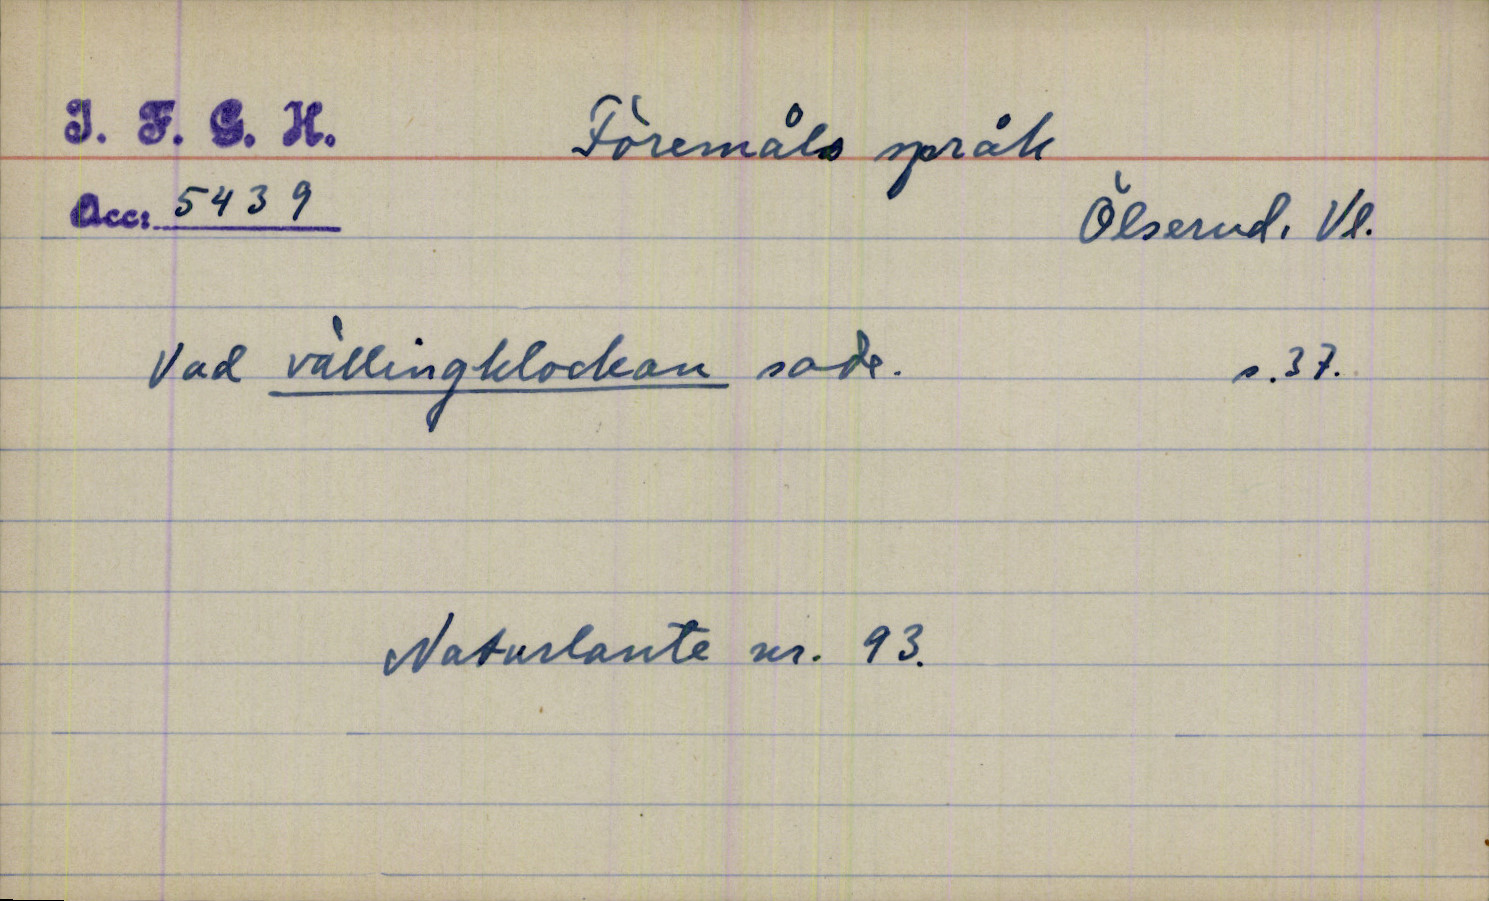 I. F. G. H. Föremåls språk
Acc: 5439
Ölserud. Vl.
Vad vällingklockan sade. s. 37.
Naturlaute nr. 93.